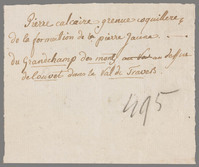 Pierre calcaire grenue coquillere
de la formation de la pierre Jaune.
du Grandchamp des monts au bas au dessus
de Couvet dans le Val de Travers
495